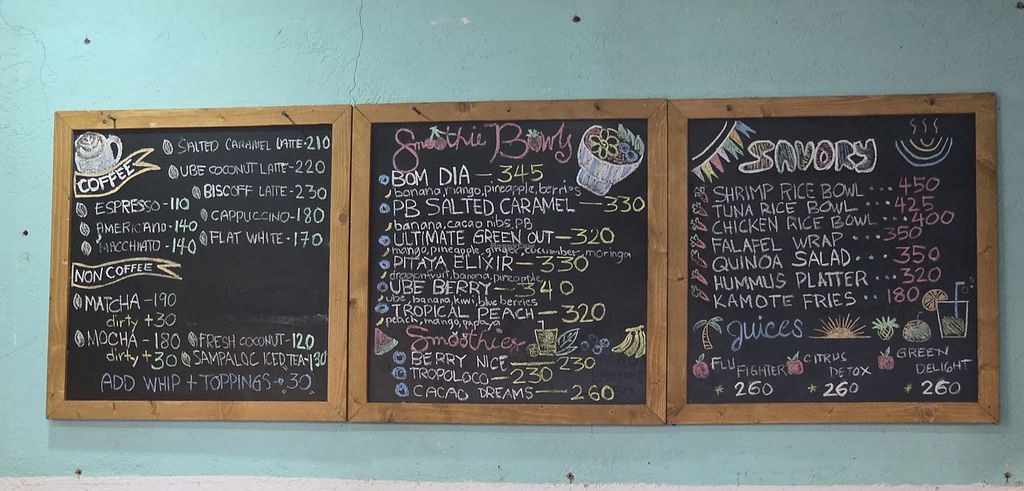 COFFEE
ESPRESSO-110
AMERICANO-140
MACCHIATO-140
SALTED CARAMEL LATTE-210
UBE COCONUT LATTE-220
BISCOFF LATTE-230
CAPPUCCINO-180
FLAT WHITE-170
NON COFFEE
MATCHA-190
dirty +30
MOCHA-180
dirty +30
FRESH COCONUT-120
SAMPALOC ICED TEA-130
ADD WHIP + TOPPINGS → 30
Smoothie Bowls
BOM DIA — 345
banana, mango, pineapple, berries
PB SALTED CARAMEL — 330
banana, cacao nibs, PB
ULTIMATE GREEN OUT — 320
mango, pineapple, ginger, cucumber, moringa
PITAYA ELIXIR — 330
dragonfruit, banana, pineapple
UBE BERRY — 340
ube, banana, kiwi, blueberries
TROPICAL PEACH — 320
peach, mango, papaya
Smoothies
BERRY NICE — 230
TROPOLOCO — 230
CACAO DREAMS — 260
SAVORY
SHRIMP RICE BOWL ... 450
TUNA RICE BOWL ... 425
CHICKEN RICE BOWL ... 400
FALAFEL WRAP ... 350
QUINOA SALAD ... 350
HUMMUS PLATTER ... 320
KAMOTE FRIES ... 180
juices
FLU FIGHTER
* 260
CITRUS DETOX
* 260
GREEN DELIGHT
* 260